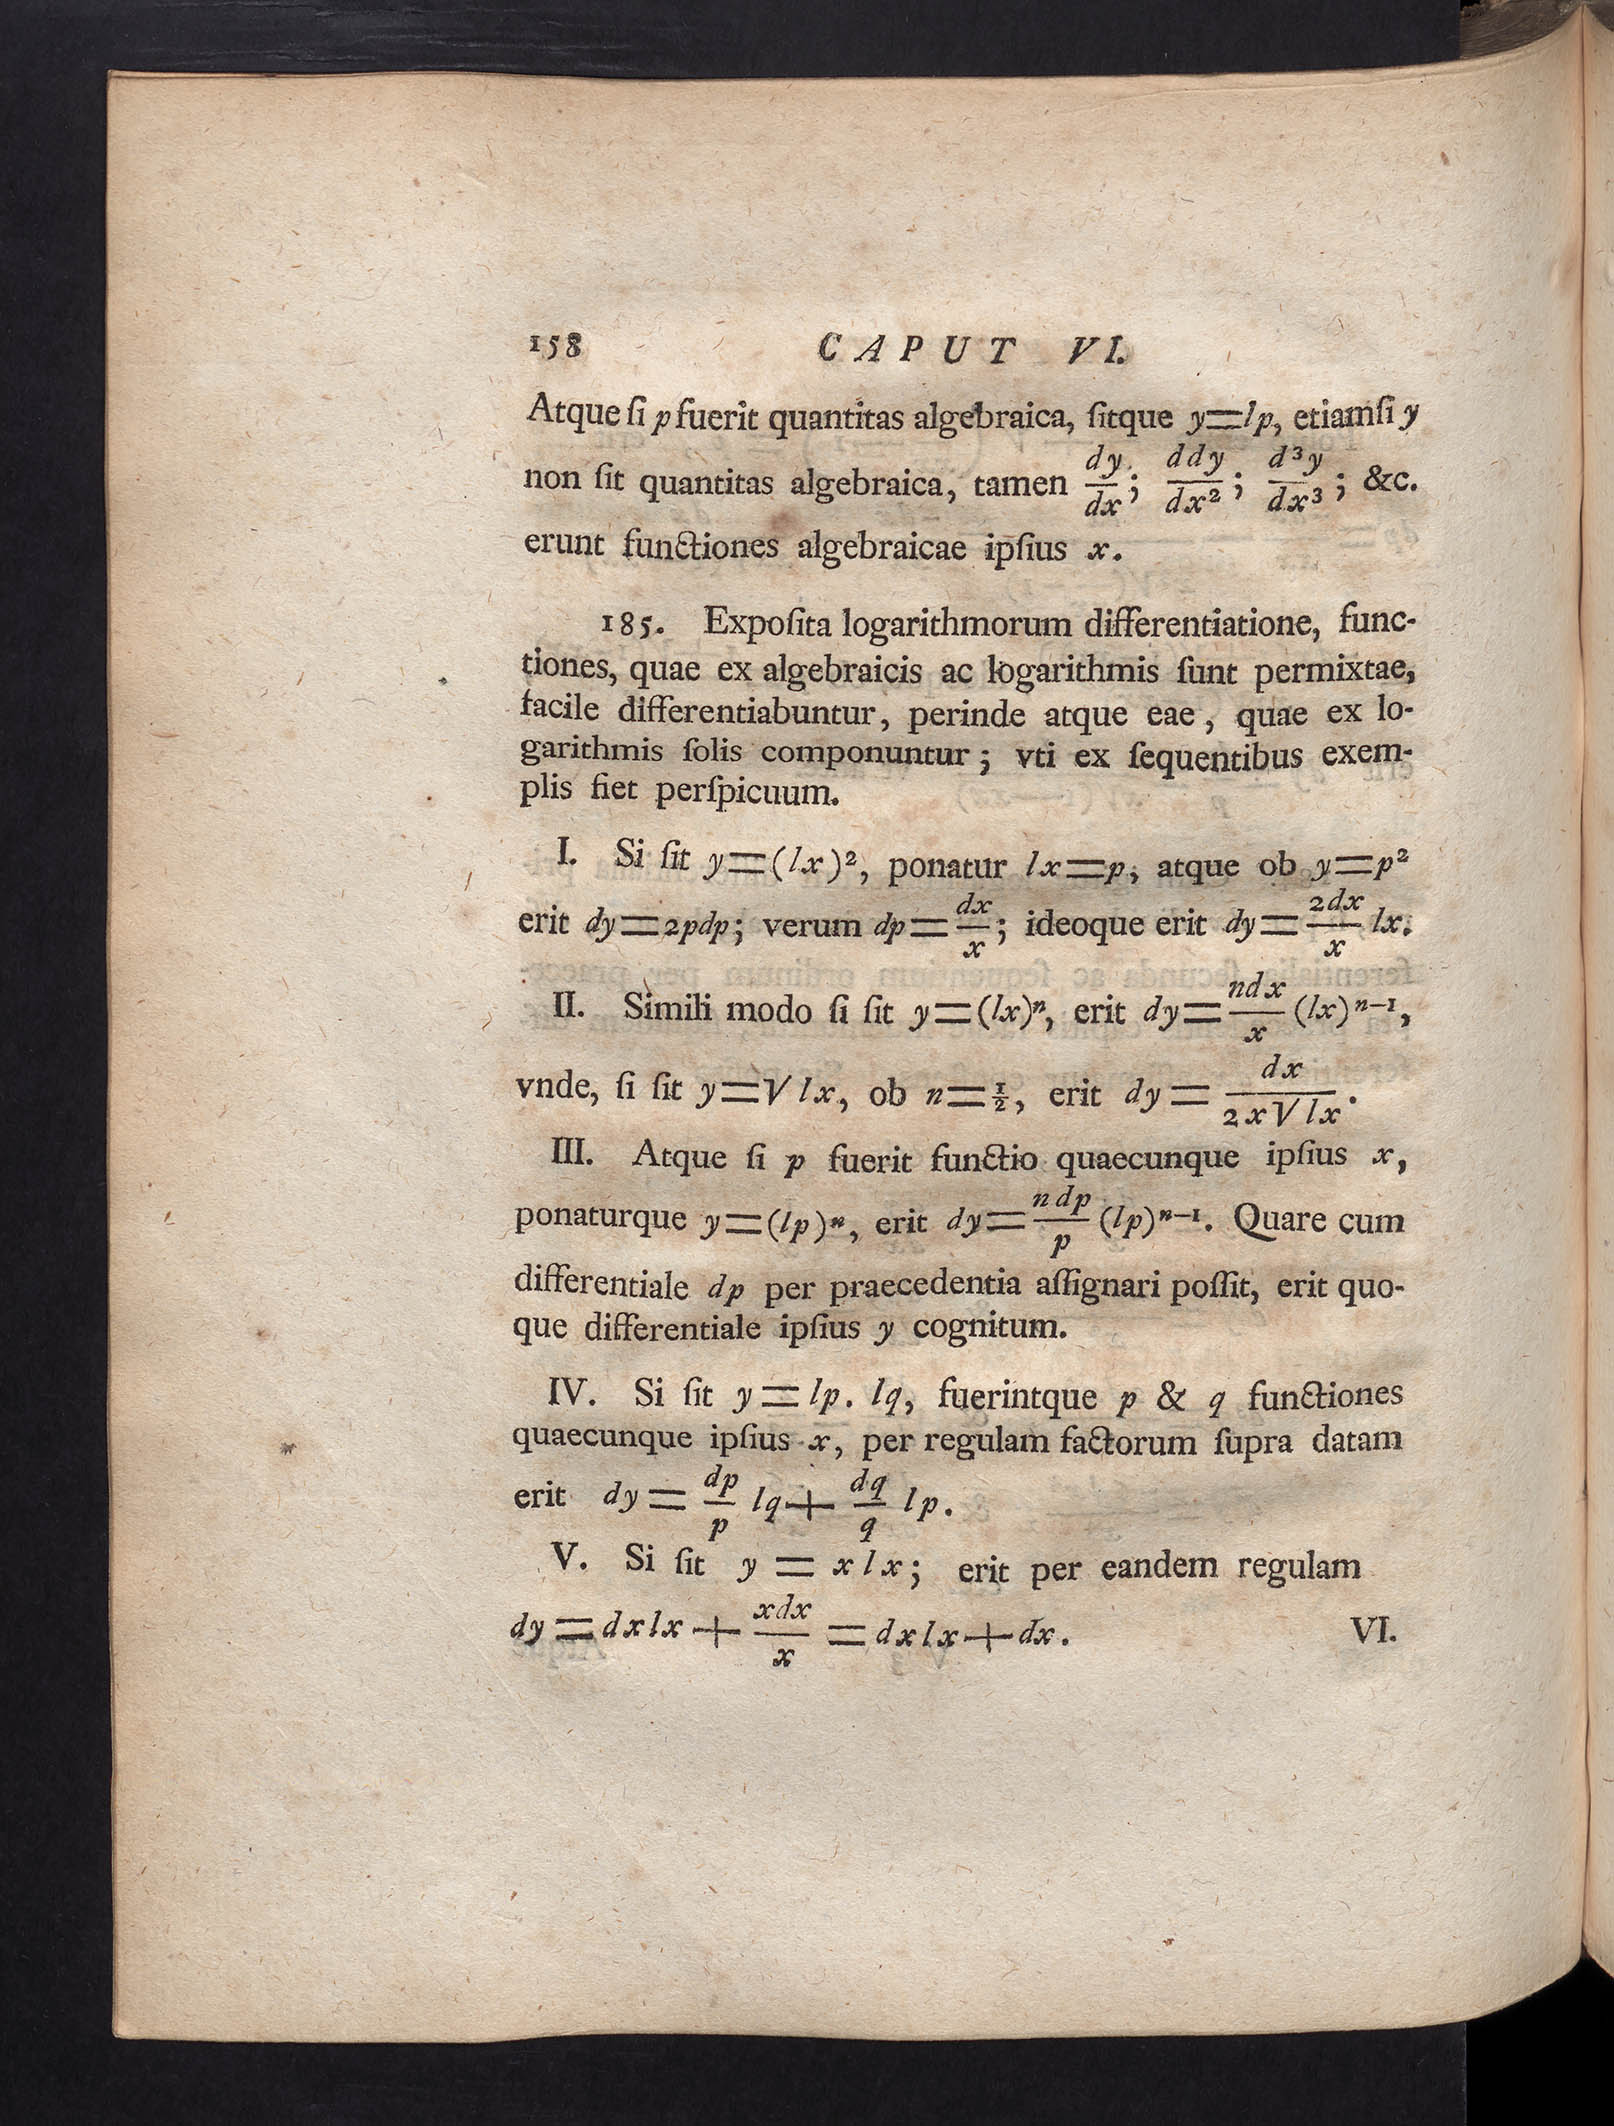 158 CAPUT VI.
Atque ſi p fuerit quantitas algebraica, ſitque y=lp, etiamſi y
non ſit quantitas algebraica, tamen dy/dx; ddy/dx²; d³y/dx³; &c.
erunt functiones algebraicae ipſius x.
185. Expoſita logarithmorum differentiatione, func-
tiones, quae ex algebraicis ac logarithmis ſunt permixtae,
facile differentiabuntur, perinde atque eae, quae ex lo-
garithmis ſolis componuntur; vti ex ſequentibus exem-
plis fiet perſpicuum.
I. Si ſit y=(lx)², ponatur lx=p, atque ob y=p²
erit dy=2pdp; verum dp=dx/x; ideoque erit dy=2dx/x lx.
II. Simili modo ſi ſit y=(lx)ⁿ, erit dy=ndx/x (lx)ⁿ⁻¹,
vnde, ſi ſit y=√lx, ob n=½, erit dy=dx/2x√lx.
III. Atque ſi p fuerit functio quaecunque ipſius x,
ponaturque y=(lp)ⁿ, erit dy=ndp/p (lp)ⁿ⁻¹. Quare cum
differentiale dp per praecedentia aſſignari poſſit, erit quo-
que differentiale ipſius y cognitum.
IV. Si ſit y=lp. lq, fuerintque p & q functiones
quaecunque ipſius x, per regulam factorum ſupra datam
erit dy=dp/p lq+dq/q lp.
V. Si ſit y = xlx; erit per eandem regulam
dy=dxlx+xdx/x=dxlx+dx. VI.